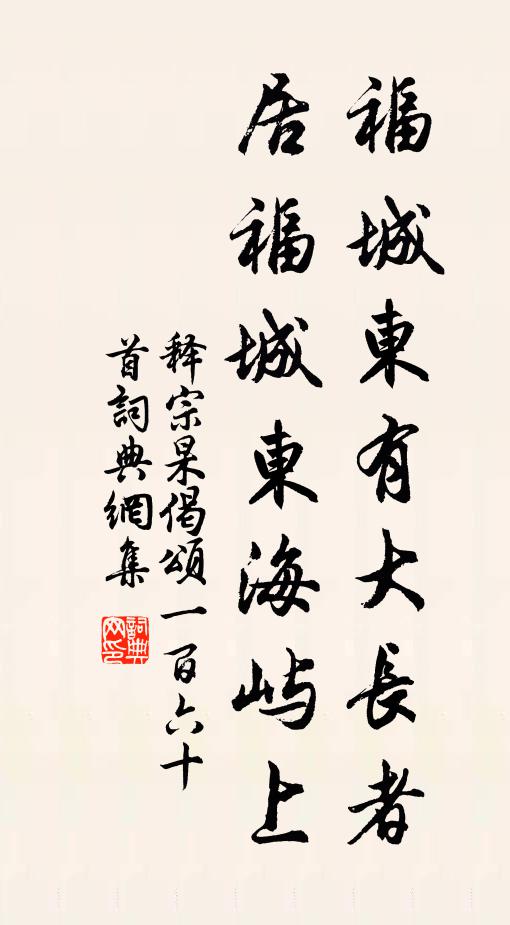 福城東有大長者
居福城東海屿上
释宗杲偈頌一百六十
首詞典網集
詞典网印